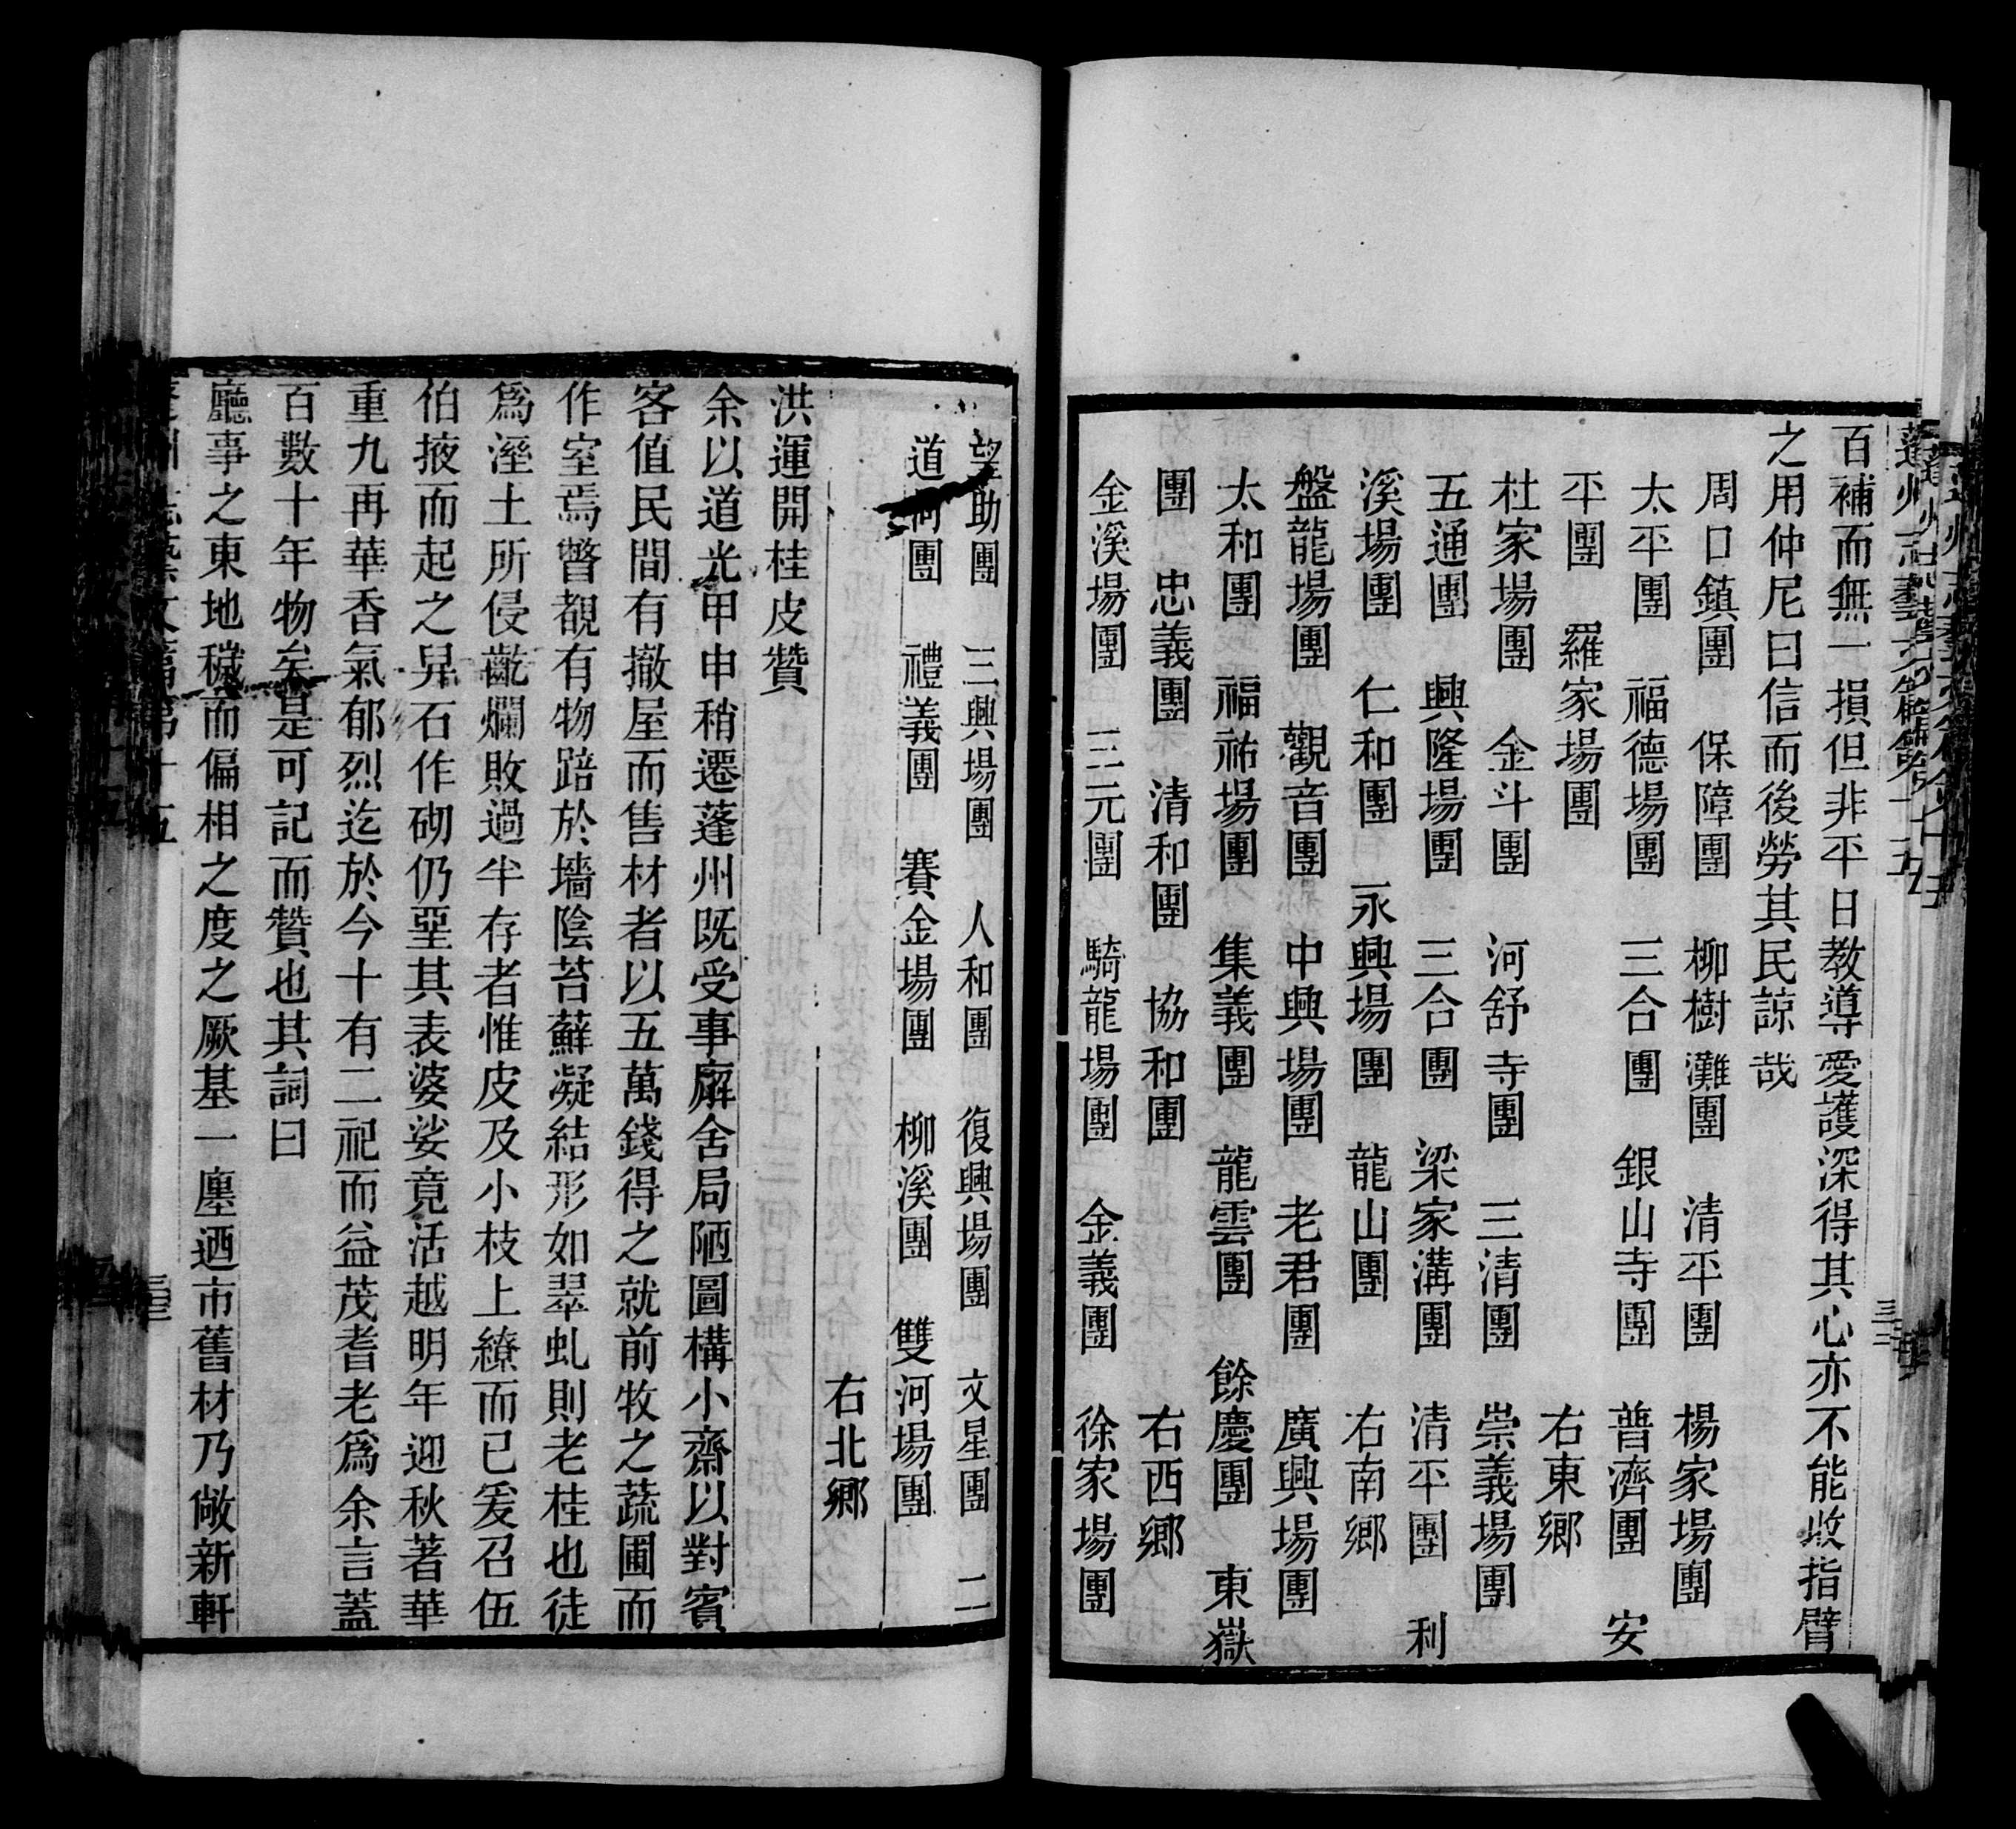 蓬州志藝文篇第十五
百補而無一損但非平日教導愛護深得其心亦不能收指臂
之用仲尼曰信而後勞其民諒哉
周口鎮團　保障團　柳樹灘團　清平團　楊家場團
太平團　福德場團　三合團　銀山寺團　普濟團　安
平團　羅家場團　右東鄉
杜家場團　金斗團　河舒寺團　三清團　崇義場團
五通團　興隆場團　三合團　梁家溝團　清平團　利
溪場團　仁和團　永興場團　龍山團　右南鄉
盤龍場團　觀音團　中興場團　老君團　廣興場團
太和團　福祐場團　集義團　龍雲團　餘慶團　東嶽
團　忠義團　清和團　協和團　右西鄉
金溪場團　三元團　騎龍場團　金義團　徐家場團
望助團　三興場團　人和團　復興場團　文星團　二
道河團　禮義團　賽金場團　柳溪團　雙河場團
右北鄉
洪運開桂皮贊
余以道光甲申稍遷蓬州既受事廨舍局陋圖構小齋以對賓
客值民間有撤屋而售材者以五萬錢得之就前牧之蔬圃而
作室焉瞥覩有物踣於墻陰苔蘚凝結形如翠虬則老桂也徒
爲溼土所侵齕爛敗過半存者惟皮及小枝上繚而已爰召伍
伯掖而起之舁石作砌仍堊其表婆娑竟活越明年迎秋著華
重九再華香氣郁烈迄於今十有二祀而益茂耆老爲余言蓋
百數十年物矣是可記而贊也其詞曰
廳事之東地穢而偏相之度之厥基一廛迺市舊材乃敞新軒